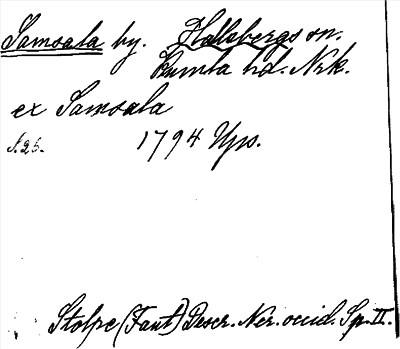 Samsala by. Hallsbergs sn.
Kumla hd. Nrk.
ex Samsala
s. 25. 1794 Ups.
Stolpe (Fant) Descr. Ner. occid. Sp. II.